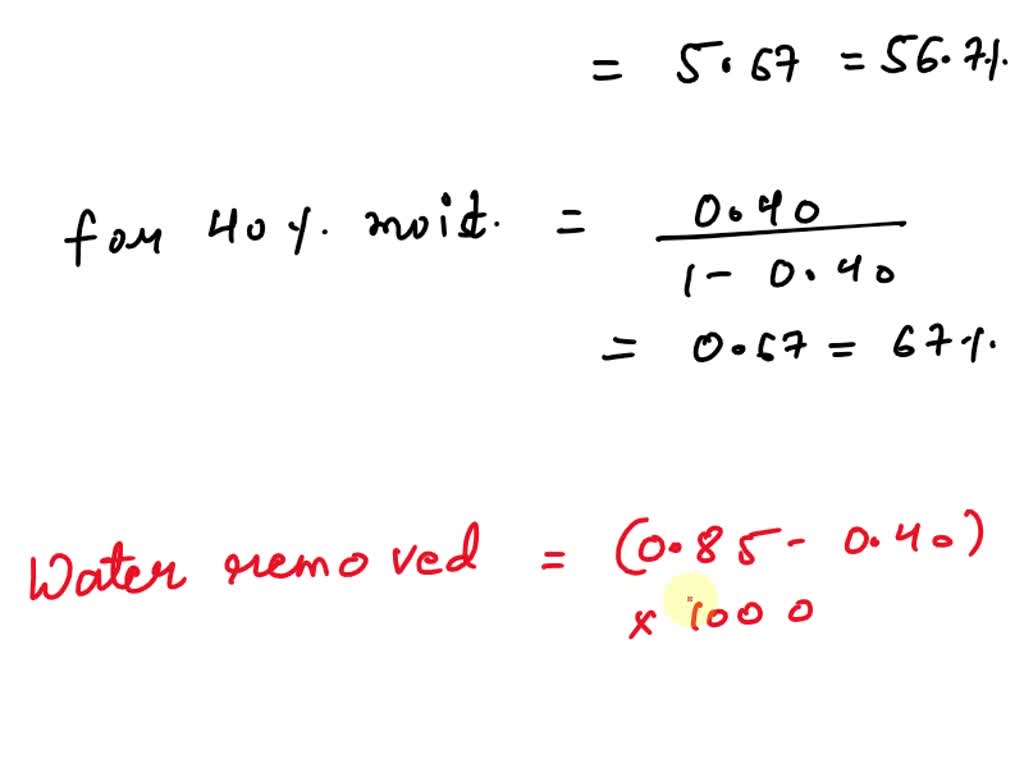 = 5.67 = 56.7%
for 40% moist. = 0.40
1 - 0.40
= 0.67 = 67%
Water removed = (0.85 - 0.40)
x 1000